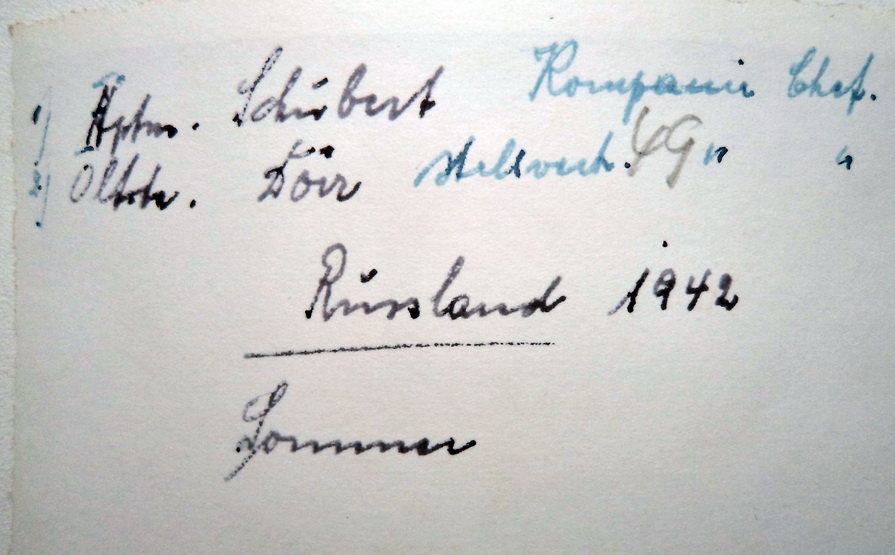 1) Hptm. Schubert Kompanie Chef.
2) Obltn. Dörr stellvertr. 49 " "
Russland 1942
Sommer